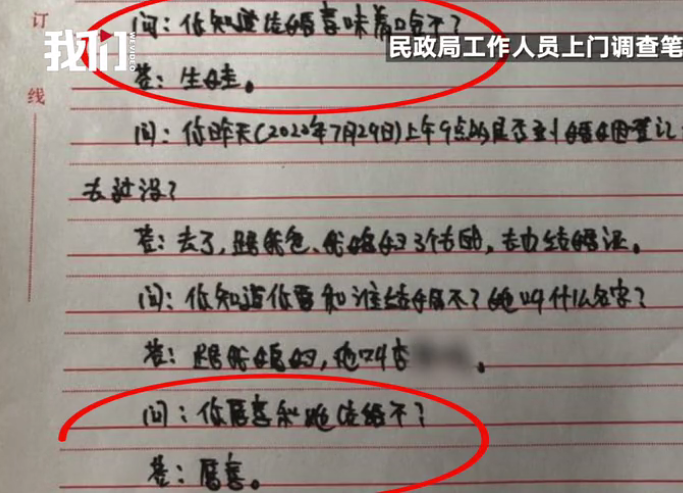 订
线
我们
WEVIDEO
民政局工作人员上门调查笔
问：你知道结婚意味着啥子不？
答：生娃。
问：你昨天(2022年7月29日)上午9点的是否到婚姻登记
去过没？
答：去了，跟我爸、我媳妇3个去的，去办结婚证。
问：你知道你要和谁结婚不？她叫什么名字？
答：跟我媳妇，她叫李
问：你愿意和她结婚不？
答：愿意。